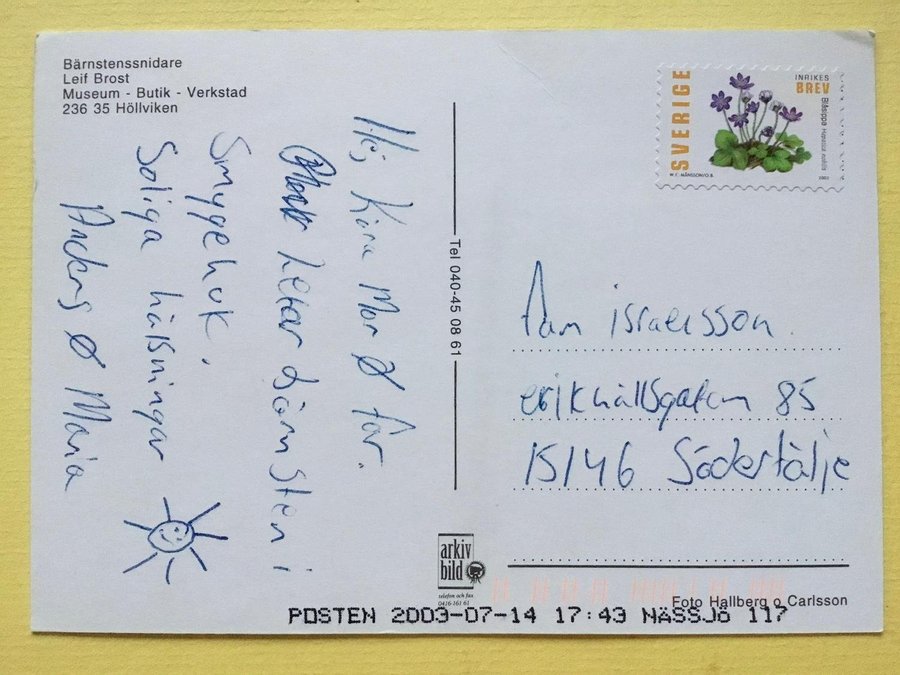 Bärnstenssnidare
Leif Brost
Museum - Butik - Verkstad
236 35 Höllviken
Hej Kära Mor & far.
letar bärnsten i
Smygehuk.
Soliga hälsningar
Anders & Maria
Tel 040-45 08 61
SVERIGE
INRIKES
BREV
Blåsippa Hepatica nobilis
2003
Fam israelsson.
erikhällsgatan 85
15146 Södertälje
arkiv
bild
telefon och fax
0416-161 61
Foto Hallberg o Carlsson
POSTEN 2003-07-14 17:43 NÄSSJö 117